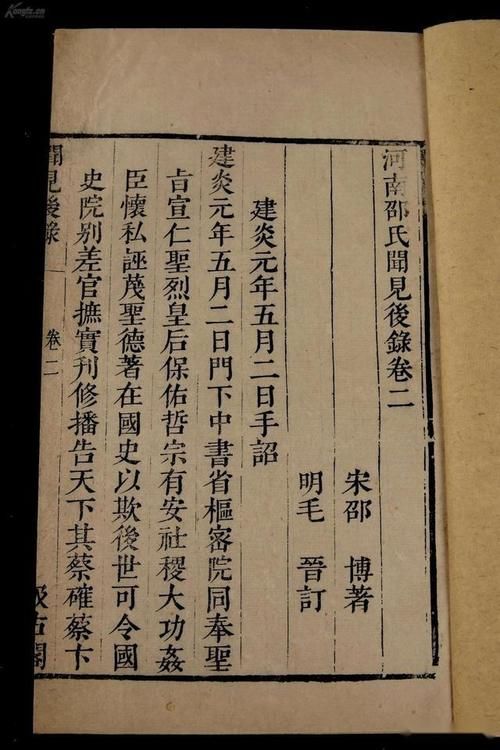 河南邵氏聞見後錄卷二
宋邵　博著
明毛　晉訂
建炎元年五月二日手詔
建炎元年五月二日門下中書省樞密院同奉聖
旨宣仁聖烈皇后保佑哲宗有安社稷大功姦
臣懷私誣蔑聖德著在國史以欺後世可令國
史院别差官摭實刊修播告天下其蔡確蔡卞
聞見後錄
卷二
汲古閣
Kongfz.cn